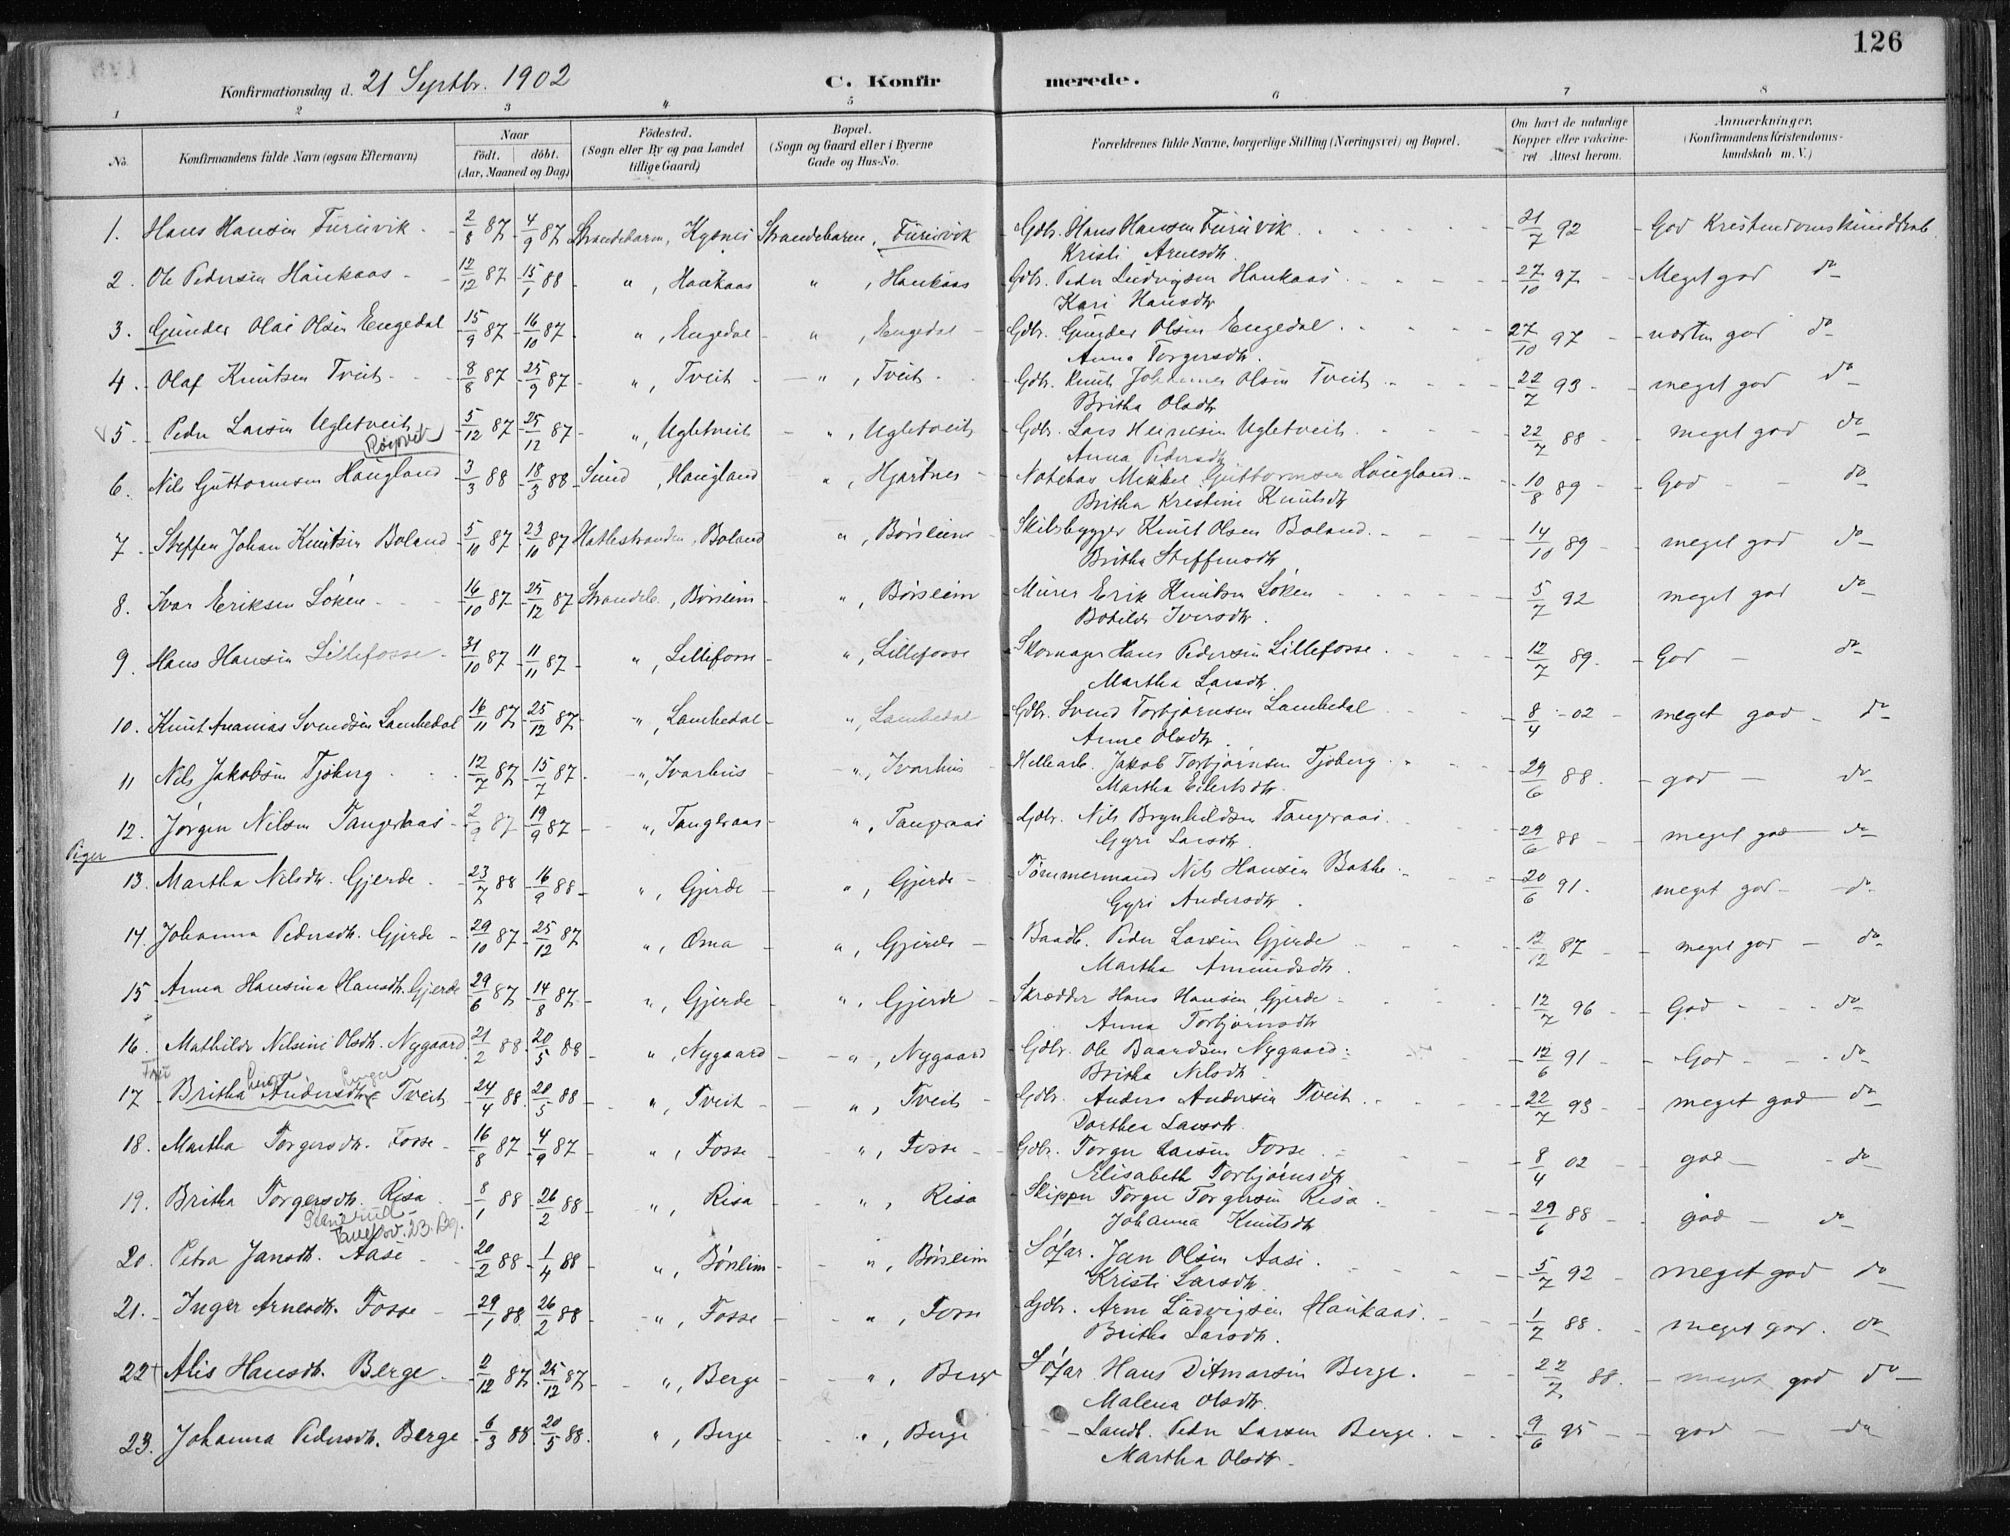 126
Konfirmationsdag d. 21 Septbr. 1902 C. Konfirmerede.
1 2 3 4 5 6 7 8
No. Konfirmandens fulde Navn (ogsaa Efternavn) Naar födt. döbt. (Aar, Maaned og Dag) Födested. (Sogn eller By og paa Landet tillige Gaard) Bopæl. (Sogn og Gaard eller i Byerne Gade og Hus-No. Forældrenes fulde Navne, borgerlige Stilling (Næringsvei) og Bopæl. Om havt de naturlige Kopper eller vakcineret Attest herom. Anmærkninger. (Konfirmandens Kristendomskundskab m. V.)
1. Hans Hansen Furuvik 2/8 87 4/9 87 Strandebarm, Kysnes Strandebarm, Furuvik Gdbr. Hans Hansen Furuvik 21/7 92 God Kristendomskundskab
Kristi Arnesdtr.
2. Ole Pedersen Haukaas 12/12 87 15/1 88 " , Haukaas " , Haukaas Gdbr. Peder Ludvigsen Haukaas 27/10 97 Meget god do
Kari Hansdtr
3. Gunder Olai Olsen Engedal 15/9 87 16/10 87 " , Engedal " , Engedal Gdbr. Gunder Olsen Engedal 27/10 97 næsten god do
Anna Torgersdtr.
4. Olaf Knutsen Tveit 8/8 87 25/9 87 " , Tveit " , Tveit Gdbr. Knut Johannes Olsen Tveit 22/7 93 meget god do
Britha Olsdtr
5. Peder Larsen Ugletveit 5/12 87 25/12 87 " , Ugletveit " , Ugletveit Gdbr. Lars Ugletveit 22/7 88 meget god do
Anna Pedersdtr
6. Nils Guttormsen Haugland 3/3 88 18/3 88 Sund, Haugland " , Hjartnes Notebas Mikkel Guttormsen Haugland 10/8 89 God do
Britha Kristine Knutsdtr
7. Steffen Johan Knutsen Boland 5/10 87 23/10 87 Hatlestranden, Boland " , Børsleim Skibsbygger Knut Olsen Boland 14/10 89 meget god do
Britha Steffensdtr
8. Ivar Eriksen Løken 16/10 87 25/12 87 Strandeb., Børsleim " , Børsleim Murer Erik Knutsen Løken 5/7 92 meget god do
Botilde Iversdtr.
9. Hans Hansen Lillefosse 31/10 87 11/11 87 " , Lillefosse " , Lillefosse Skomager Hans Pedersen Lillefosse 12/7 89 God do
Martha Larsdtr.
10. Knut Ananias Svendsen Lambedal 16/11 87 25/12 87 " , Lambedal " , Lambedal Gdbr. Svend Torbjørnsen Lambedal 8/4 02 meget god do
Anne Olsdtr.
11 Nils Jakobsen Tjoberg 12/7 87 15/7 87 " , Ivarhus " , Ivarhus Hellearb. Jakob Torbjørnsen Tjoberg 29/6 88 god do
Martha Eilertsdtr.
12. Jørgen Nilsen Tangeraas 2/9 87 19/9 87 " , Tangeraas " , Tangeraas Gdbr. Nils Brynhildsen Tangeraas 29/6 88 meget god do
Gyri Larsdtr.
Piger
13. Martha Nilsdtr. Gjerde 23/7 88 16/9 88 " , Gjerde " , Gjerde Tømmermand Nils Hansen Bakke 20/6 91 meget god do
Gyri Andersdtr.
14. Johanna Pedersdtr. Gjerde 29/10 87 25/12 87 " , Oma " , Gjerde Baadb. Peder Larsen Gjerde 12/12 87 meget god do
Martha Amundsdtr.
15 Anna Hansina Hansdtr. Gjerde 29/6 87 14/8 87 " , Gjerde " , Gjerde Skrædder Hans Hansen Gjerde 12/7 96 God do
Anna Torbjørnsdtr
16. Mathilde Nilsine Olsdtr. Nygaard 21/2 88 20/5 88 " , Nygaard " , Nygaard Gdbr. Ole Baardsen Nygaard 12/6 91 God do
Britha Nilsdtr
17 Britha Andersdtr Tveit 24/4 88 20/5 88 " , Tveit " , Tveit Gdbr. Anders Andersen Tveit 22/7 93 meget god do
Dorthea Larsdtr.
18. Martha Torgersdtr. Fosse 16/8 87 4/9 87 " , Fosse " , Fosse Gdbr. Torger Larsen Fosse 8/4 02 god do
Elisabeth Torbjørnsdtr
19. Britha Torgersdtr. Risa 8/1 88 26/2 88 " , Risa " , Risa Skipper Torger Torgersen Risa 29/6 88 god do
Johanna Knutsdtr
20. Petra Jansdtr. Aase 20/2 88 1/4 88 " , Børsleim " , Børsleim Søfar. Jan Olsen Aase 5/7 92 meget god do
Kristi Larsdtr.
21. Inger Arnesdtr. Fosse 29/1 88 26/2 88 " , Fosse " , Fosse Gdbr. Arne Ludvigsen Haukaas 1/7 88 meget god do
Britha Larsdtr.
22 Alis Hansdtr. Berge 2/12 87 25/12 87 " , Berge " , Berge Søfar Hans Ditmarsen Berge 22/7 88 meget god do
Malena Olsdtr.
23. Johanna Pedersdtr. Berge 6/3 88 20/5 88 " , Berge " , Berge Landb. Peder Larsen Berge 9/6 95 god do
Martha Olsdtr